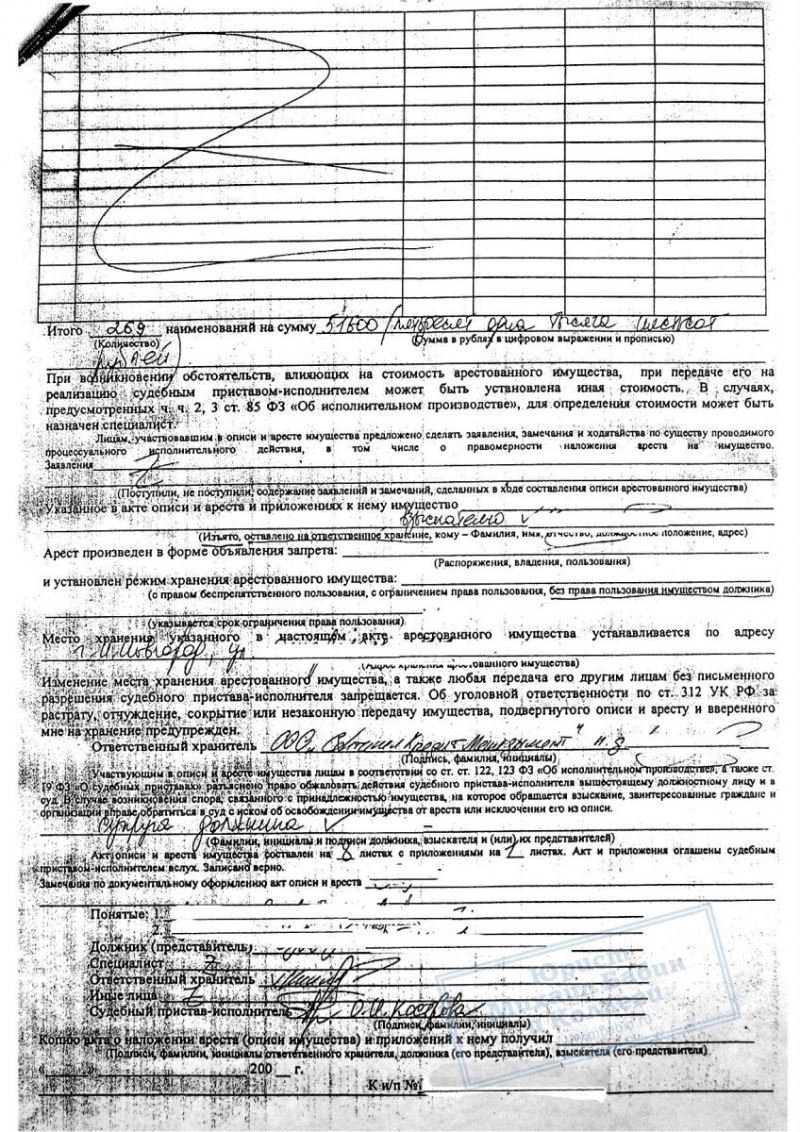 Итого 269 наименований на сумму 51600 (пятьдесят одна тысяча шестьсот
(Количество) (Сумма в рублях в цифровом выражении и прописью)
рублей)
При возникновении обстоятельств, влияющих на стоимость арестованного имущества, при передаче его на
реализацию судебным приставом-исполнителем может быть установлена иная стоимость. В случаях,
предусмотренных ч. ч. 2, 3 ст. 85 ФЗ «Об исполнительном производстве», для определения стоимости может быть
назначен специалист.
Лицам, участвовавшим в описи и аресте имущества предложено сделать заявления, замечания и ходатайства по существу проводимого
процессуального исполнительного действия, в том числе о правомерности наложения ареста на имущество.
Заявления
(Поступили, не поступили, содержание заявлений и замечаний, сделанных в ходе составления описи арестованного имущества)
Указанное в акте описи и ареста и приложениях к нему имущество
взыскателю
(Изъято, оставлено на ответственное хранение, кому – Фамилия, имя, отчество, должностное положение, адрес)
Арест произведен в форме объявления запрета:
(Распоряжения, владения, пользования)
и установлен режим хранения арестованного имущества:
(с правом беспрепятственного пользования, с ограничением права пользования, без права пользования имуществом должника)
(указывается срок ограничения права пользования)
Место хранения указанного в настоящем акте арестованного имущества устанавливается по адресу
г. Н. Новгород, ул.
(Адрес хранения арестованного имущества)
Изменение места хранения арестованного имущества, а также любая передача его другим лицам без письменного
разрешения судебного пристава-исполнителя запрещается. Об уголовной ответственности по ст. 312 УК РФ за
растрату, отчуждение, сокрытие или незаконную передачу имущества, подвергнутого описи и аресту и вверенного
мне на хранение предупрежден.
Ответственный хранитель ООО Кредит Менеджмент"
(Подпись, фамилия, инициалы)
Участвующим в описи и аресте имущества лицам в соответствии со ст. ст. 122, 123 ФЗ «Об исполнительном производстве», а также ст.
19 ФЗ «О судебных приставах» разъяснено право обжаловать действия судебного пристава-исполнителя вышестоящему должностному лицу и в
суд. В случае возникновения спора, связанного с принадлежностью имущества, на которое обращается взыскание, заинтересованные граждане и
организации вправе обратиться в суд с иском об освобождении имущества от ареста или исключении его из описи.
Супруга должника
(Фамилии, инициалы и подписи должника, взыскателя и (или) их представителей)
Акт описи и ареста имущества составлен на 8 листах с приложениями на листах. Акт и приложения оглашены судебным
приставом-исполнителем вслух. Записано верно.
Замечания по документальному оформлению акт описи и ареста
Понятые: 1.
2.
Должник (представитель)
Специалист
Ответственный хранитель
Иные лица
Судебный пристав-исполнитель О.И. Кострова
(Подписи, фамилии, инициалы)
Копию акта о наложении ареста (описи имущества) и приложений к нему получил
(Подписи, фамилии, инициалы ответственного хранителя, должника (его представителя), взыскателя (его представителя)
« 200 г.
К и/п №
Юрист
Михаил Бабин
и Коллеги